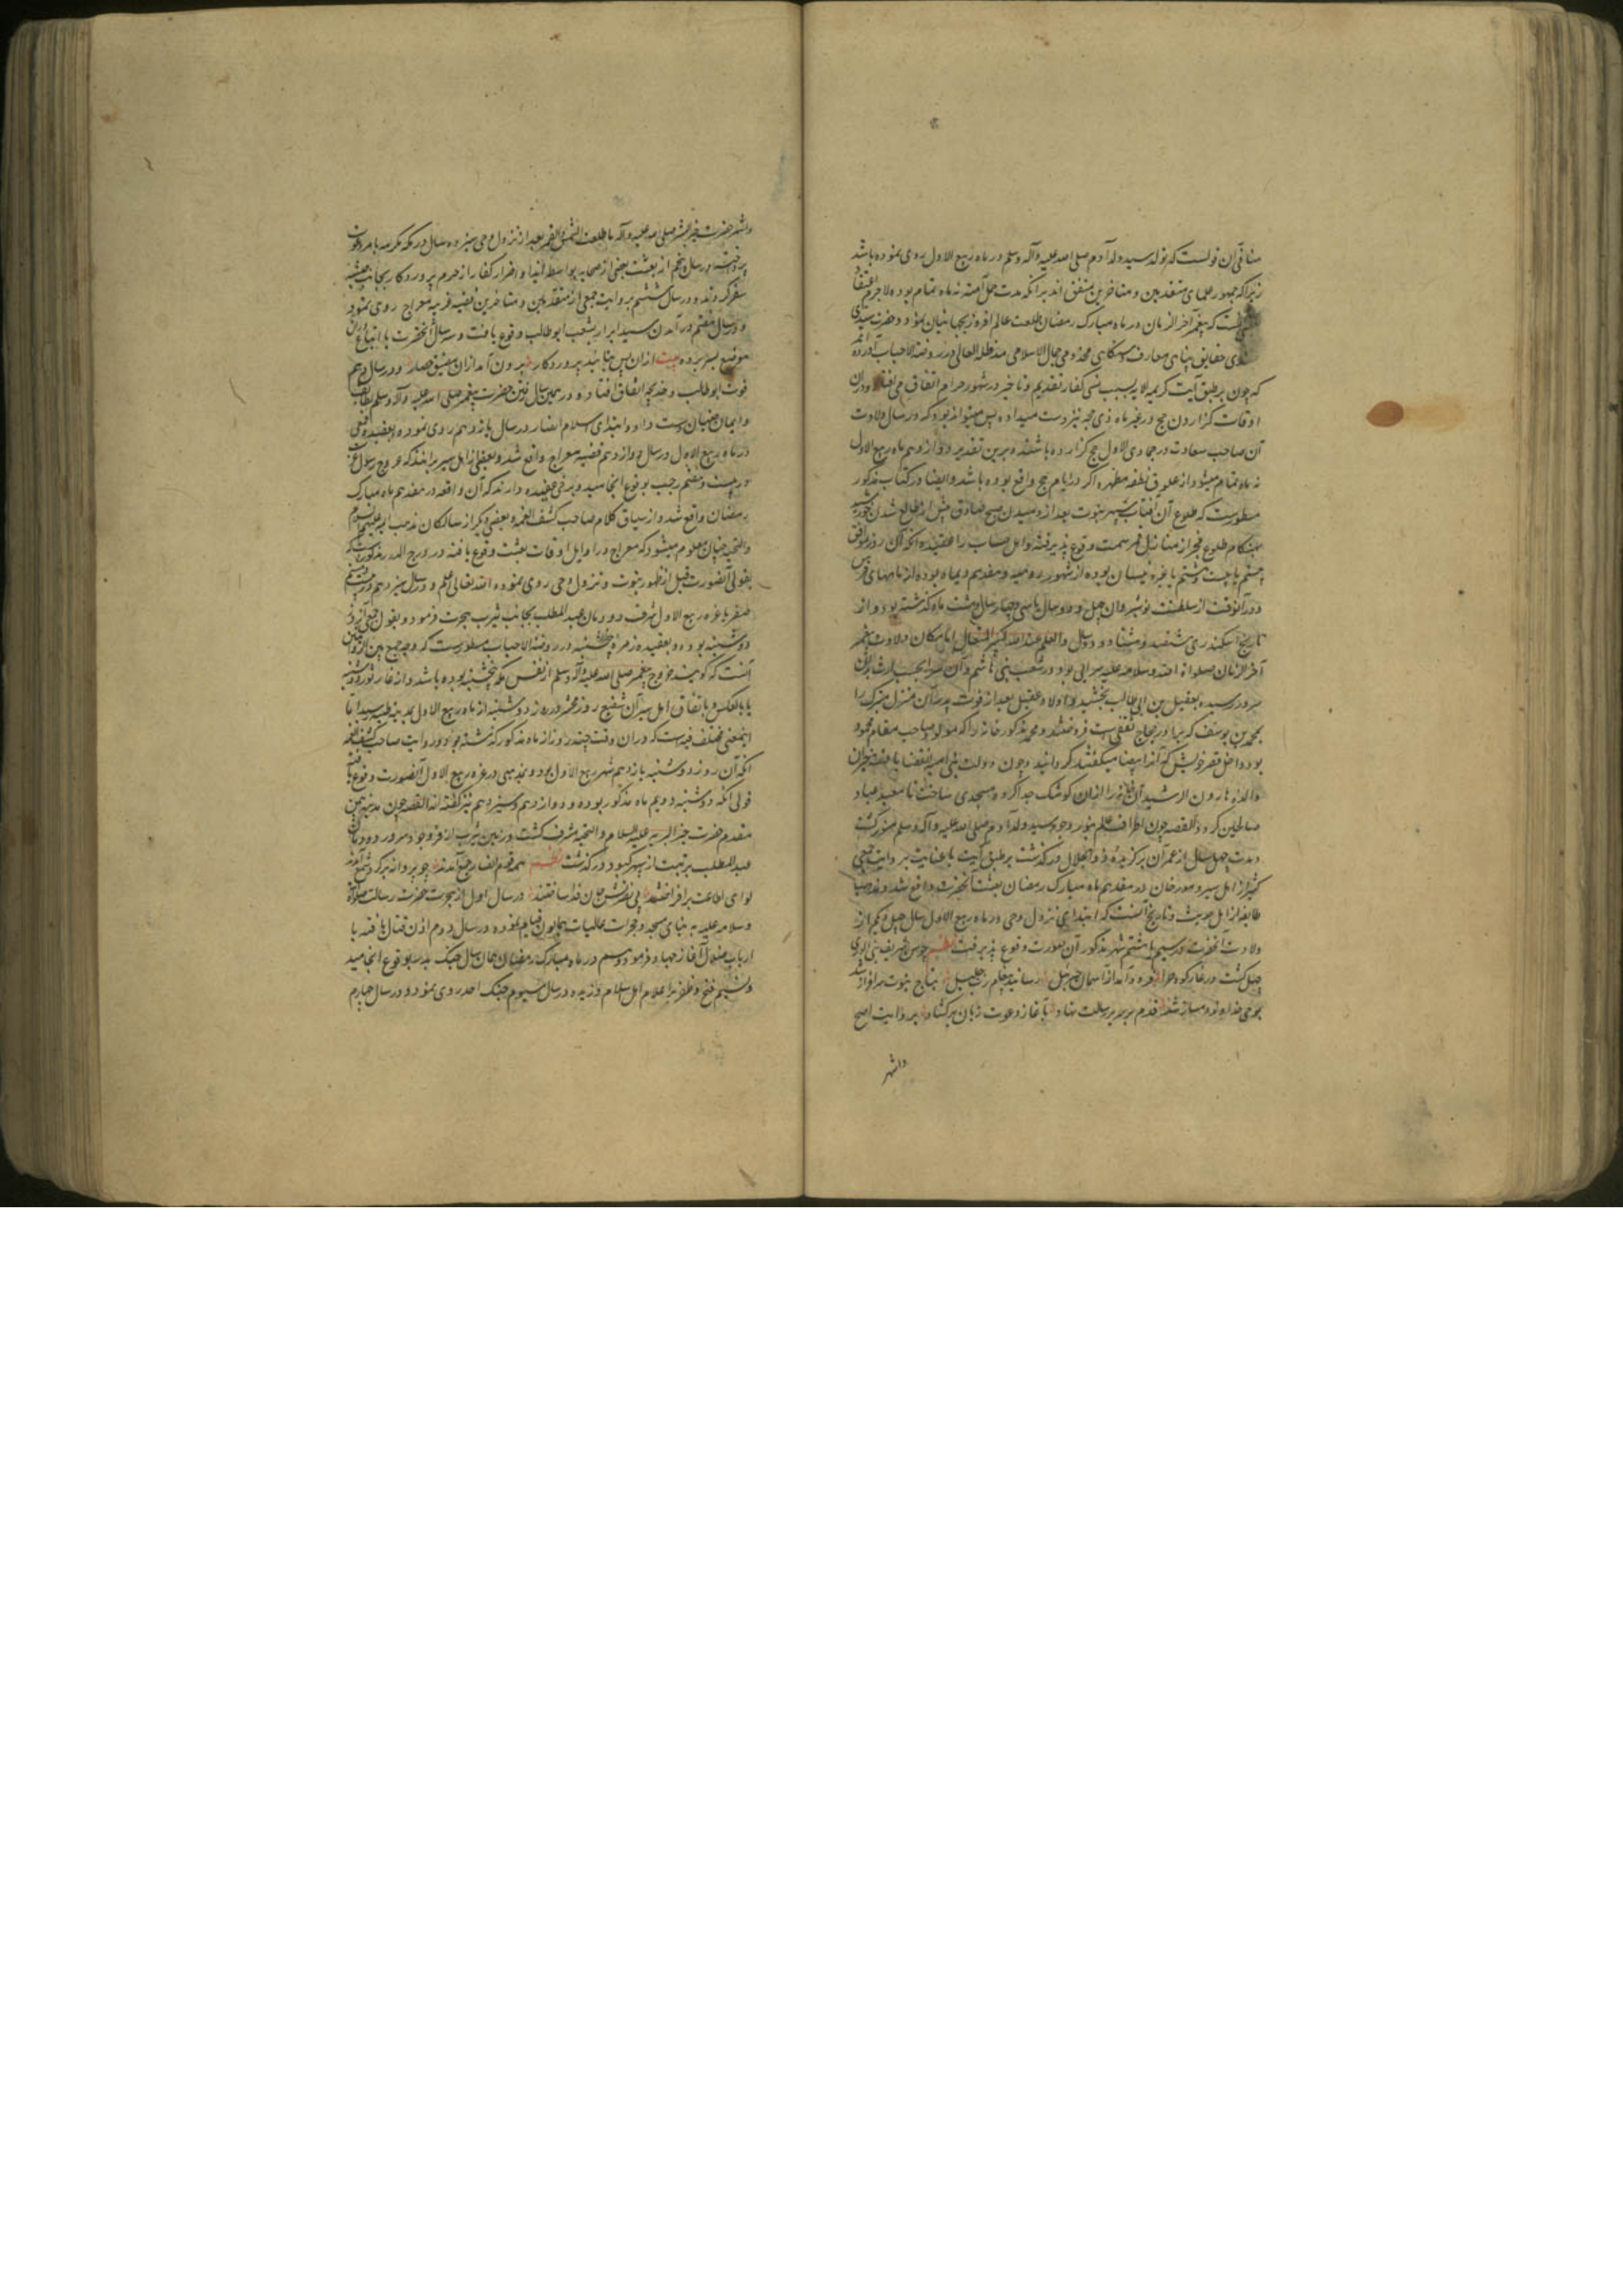 منافی آن قولست که تولد سید ولد آدم صلی الله علیه وآله وسلم در ماه ربیع الاول روی نموده باشد
زیرا که جمهور علمای متقدمین و متاخرین متفق اند برآنکه مدت حمل آمنه نه ماه تمام بوده لاجرم
که پیغمبر آخر الزمان در ماه مبارک رمضان طلعت عالم افروز بجهانیان نمود و حضرت سیدی
حقایق پناهی معارف دستگاهی مخدومی جمال الاسلامی مد ظله العالی در روضة الاحباب آورده
که چون بر طبق آیت کریمه لا بسبب نسی کفار تقدیم و تاخیر در شهور حرام اتفاق می افتاد ودران
اوقات گزاردن حج در غیر ماه ذی حجه نیز دست میداده پس میتواند بود که در سال ولادت
آن صاحب سعادت در جمادی الاول حج گزارده باشند و برین تقدیر دوازدهم ماه ربیع الاول
نه ماه تمام میشود از علوق نطفه مطهره اگر در ایام حج واقع بوده باشد و ایضا در کتاب مذکور
مسطورست که طلوع آن آفتاب سپهر نبوت بعد از دمیدن صبح صادق پیش از طالع شدن خورشید
بهنگام طلوع غفر از منازل قمر سمت وقوع پذیرفته و اهل حساب را عقیده آنکه آن روز موافق
بیستم یا بیست و هشتم یا غره نیسان بوده از شهور رومیه و هفدهم دیماه بوده از ماههای فرس
و در آنوقت از سلطنت نوشیروان چهل و دو سال یا سی و چهار سال و هشت ماه گذشته بود و از
تاریخ اسکندری ششصد و هشتاد و دو سال والعلم عند الله الکبیر المتعال اما مکان ولادت پیغمبر
آخر الزمان صلوات الله وسلامه علیه سرایی بود در شعب بنی هاشم و آن سرا بحسب ارث بدان
سرور رسیده بعقیل بن ابی طالب بخشید و اولاد عقیل بعد از فوت پدر آن منزل متبرک را
بمحمد بن یوسف که برادر حجاج ثقفی است فروختند و محمد مذکور خانه را که مولد صاحب مقام محمود
بود داخل قصر خویش که آنرا بیضا میگفتند گردانید و چون دولت بنی امیه بانقضا یافت خیزران
والده هارون الرشید آن خانه را ازان کوشک جدا کرده مسجدی ساخت تا معبد عباد
صالحین گردد القصه چون اطراف عالم بنور وجود سید ولد آدم صلی الله علیه وآله وسلم منور گشت
و مدت چهل سال از عمر آن برگزیده ذو الجلال درگذشت بر طبق آیت با عنایت بروایت جمعی
کثیر از اهل سیر و مورخان در هفدهم ماه مبارک رمضان بعثت آنحضرت واقع شد
طایفه از اهل حدیث و تاریخ آنست که ابتدای نزول وحی در ماه ربیع الاول سال چهل و یکم از
ولادت آنحضرت در سیم یا هشتم شهر مذکور آن صورت وقوع پذیرفت نظم چو سن شریف نبی الوری
چهل گشت در غار کوه حرا فرود آمد از آسمان جبرئیل رسانید پیغام رب جلیل بتاج نبوت سرافراز شد
بوحی خداوند دمساز شد قدم بر سریر رسالت نهاد بآغاز دعوت زبان برگشاد بروایت اصح
واشهر
واشهر حضرت خیر البشر صلی الله علیه وآله ما طلعت الشمس والقمر بعد از نزول وحی سیزده سال در مکه مکرمه بامر دعوت
پرداخت و در سال پنجم از بعثت بعضی از صحابه بواسطه ایذا و اضرار کفار از حرم پروردگار بجانب حبشه
سفر کردند و در سال ششم بروایت جمعی از متقدمین و متاخرین قضیه معراج روی نمود
و در سال هفتم درآمدن سید ابرار بشعب ابو طالب وقوع یافت و سه سال آنحضرت با اتباع دران
موضع بسر برده بیت ازان پس بتائید پروردگار برون آمد ازان مضیق حصار و در سال دهم
فوت ابو طالب و خدیجه اتفاق افتاد و در همین سال رفتن حضرت پیغمبر صلی الله علیه وآله وسلم بطائف
و ایمان جنیان دست داد و ابتدای اسلام انصار در سال یازدهم روی نموده بعقیده واقدی
در ماه ربیع الاول در سال دوازدهم قضیه معراج واقع شد و بعضی از اهل سیر برانند که عروج رسول عرب
در بیست و هفتم رجب بوقوع انجامید و برخی عقیده دارند که آن واقعه در هفدهم ماه مبارک
رمضان واقع شد و از سیاق کلام صاحب کشف الغمه و بعضی دیگر از سالکان مذهب امامیه علیهم السلام
والتحیه چنان معلوم میشود که معراج در اوایل اوقات بعثت وقوع یافته و در درج الدرر مذکورست که
بقولی آنصورت قبل از ظهور نبوت و نزول وحی روی نموده الله تعالی اعلم و در سال سیزدهم در بیست و هشتم
صفر یا غره ربیع الاول شرف دودمان عبد المطلب بجانب یثرب هجرت فرمود و بقول جمعی آنروز
دوشنبه بوده و بعقیده زمره پنجشنبه و در روضة الاحباب مسطورست که وجه جمع بین الروایتین
آنست که گویند خروج پیغمبر صلی الله علیه وآله وسلم از نفس مکه پنجشنبه بوده باشد و از غار ثور دوشنبه
یا بالعکس و باتفاق اهل سیر آن شفیع روز محشر در روز دوشنبه از ماه ربیع الاول بمدینه طیبه رسید اما
اینمعنی مختلف فیه است که دران وقت چند روز از ماه مذکور گذشته بود و روایت صاحب کشف الغمه
آنکه آن روز دوشنبه یازدهم شهر ربیع الاول بود و بمذهبی در غره ربیع الاول آنصورت وقوع یافته
قولی آنکه دوشنبه دویم ماه مذکور بوده و دوازدهم و سیزدهم نیز گفته اند القصه چون مدینه بیمن
مقدم حضرت خیر البریه علیه السلام والتحیه مشرف گشت و زمین یثرب از فر وجود سرور دودمان
عبد المطلب برتبت از سپهر کبود درگذشت نظم همه قوم انصار جمع آمدند چو پروانه بر گرد شمع آمدند
لوای اطاعت برافراختند پی نصرتش جان فدا ساختند در سال اول از هجرت حضرت رسالت صلوات
وسلامه علیه به بنای مسجد و حجرات عالیات همایون قیام نموده در سال دوم اذن قتال یافته با
ارباب ضلال آغاز جهاد فرمود و هم در ماه مبارک رمضان همان سال جنگ بدر بوقوع انجامید
و نسیم فتح و ظفر بر اعلام اهل اسلام وزیده در سال سیوم جنگ احد روی نمود و در سال چهارم